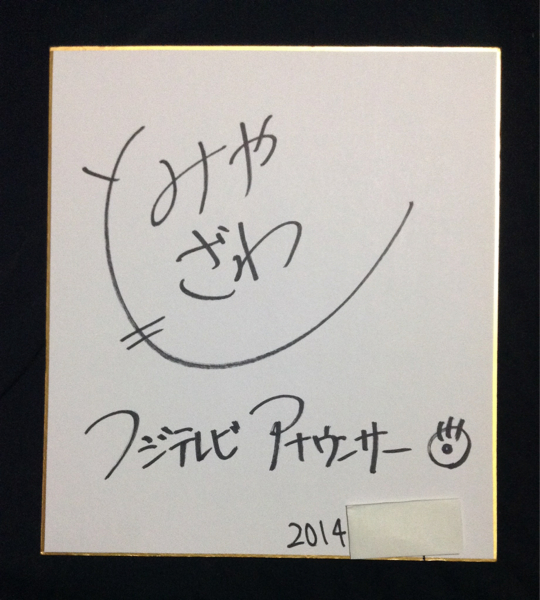 みや
ざわ
フジテレビ アナウンサー
2014